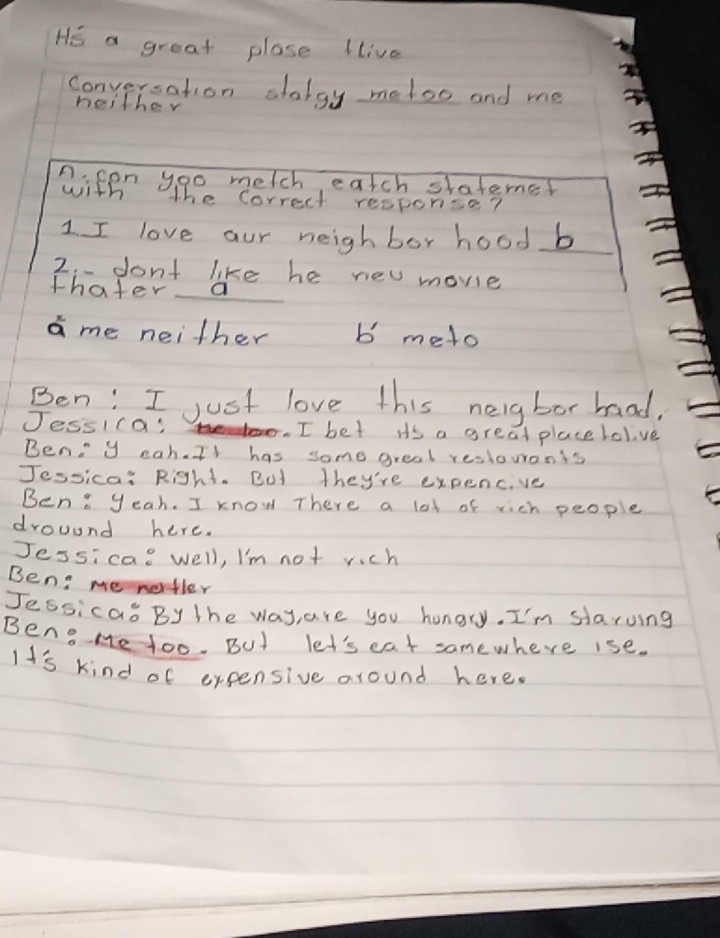 It's a great plase tlive
Conversation statgy me too and me
neither
A. con yoo metch eatch statemet
with the correct response?
1_I love aur neighbor hood b
2._ dont like he neu movie
thater a
a me neither b meto
Ben: I just love this neigbor haad.
Jessica: me too. I bet it's a great place tolive
Ben: yeah. It has some great restaurants
Jessica: Right. But they're expencive
Ben: yeah. I know There a lot of rich people
drouund here.
Jessica: well, I'm not rich
Ben: me neither
Jessica: By the way, are you hungry. I'm starving
Ben: Me too. But let's eat somewhere ise.
It's kind of expensive around here.